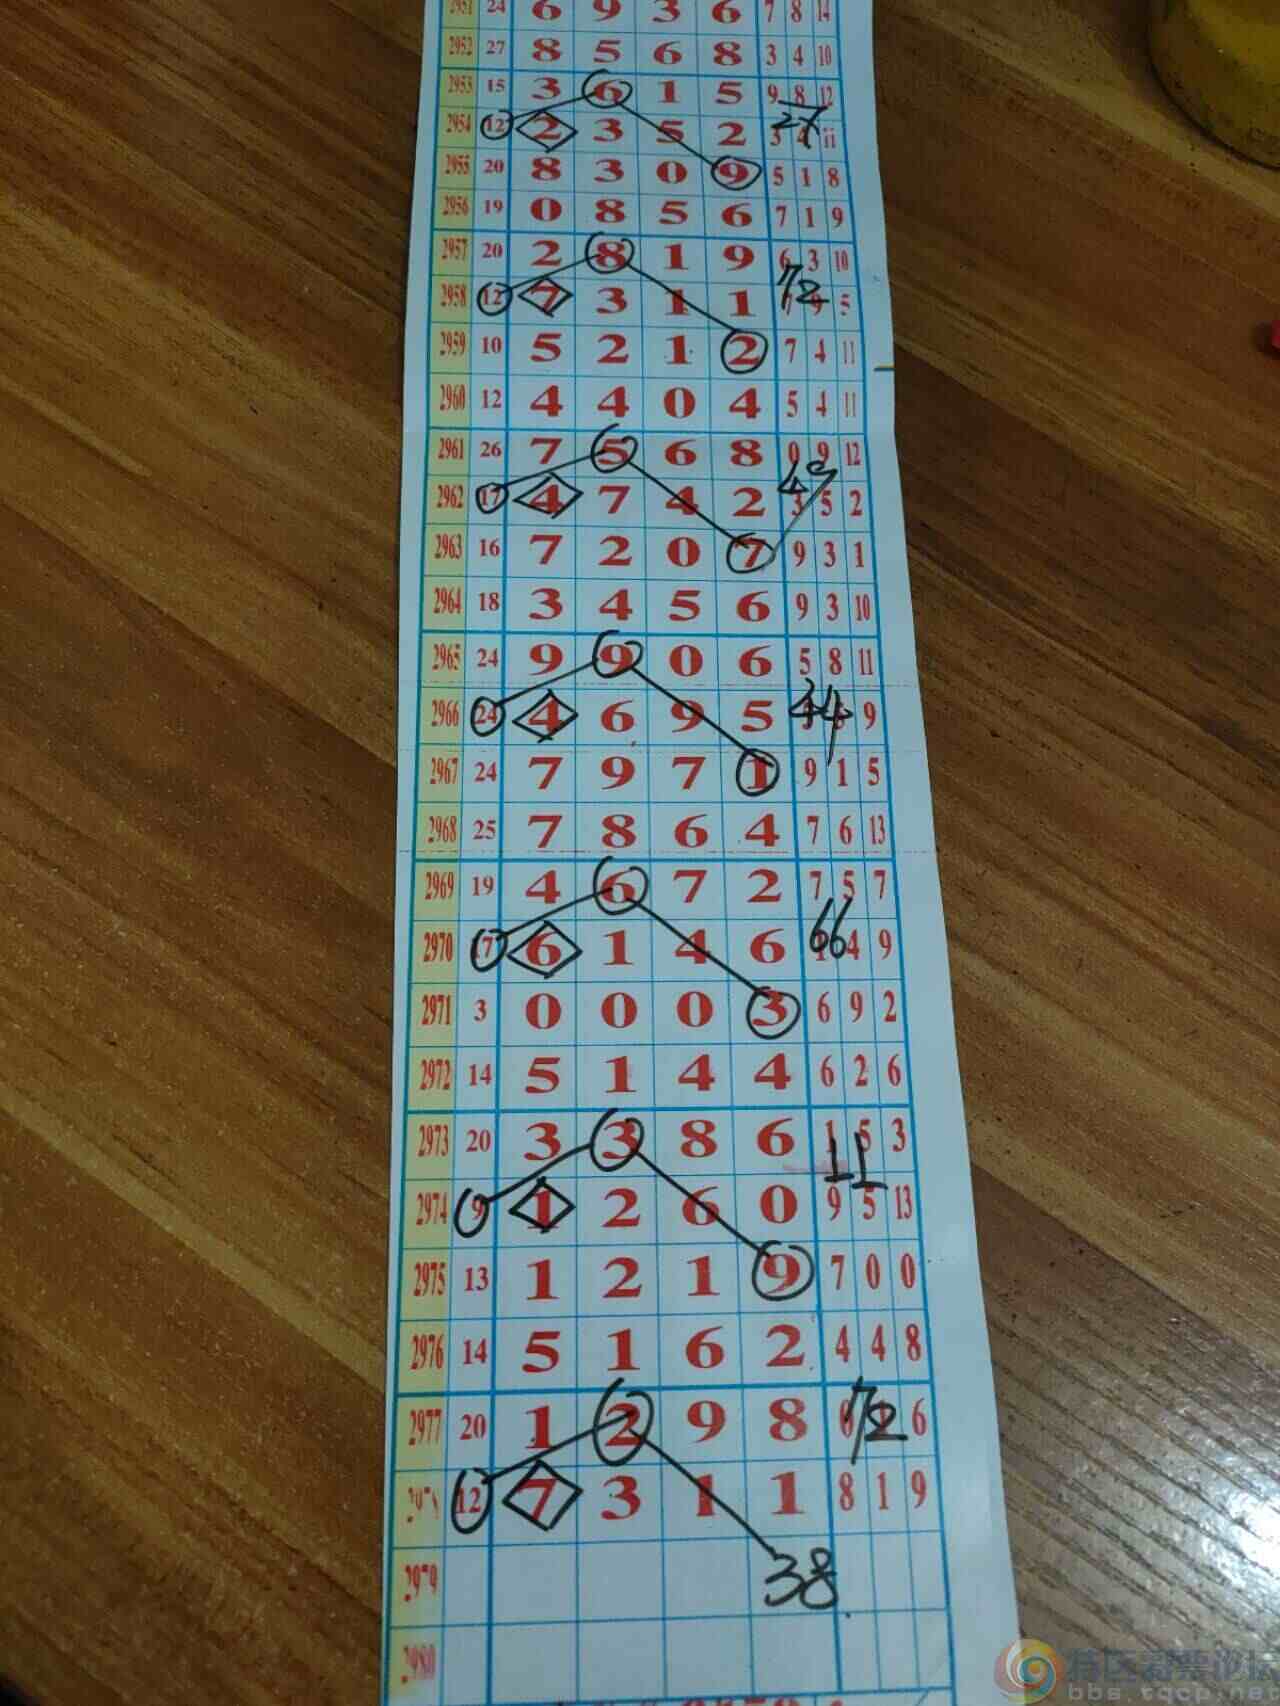 2951 24 6 9 3 6 7 8 14
2952 27 8 5 6 8 3 4 10
2953 15 3 6 1 5 9 8 12
2954 12 2 3 5 2 3 4 11
27
2955 20 8 3 0 9 5 1 8
2956 19 0 8 5 6 7 1 9
2957 20 2 8 1 9 6 3 10
72
2958 12 7 3 1 1 7 9 5
2959 10 5 2 1 2 7 4 11
2960 12 4 4 0 4 5 4 11
2961 26 7 5 6 8 0 9 12
49
2962 17 4 7 4 2 3 5 2
2963 16 7 2 0 7 9 3 1
2964 18 3 4 5 6 9 3 10
2965 24 9 9 0 6 5 8 11
44
2966 24 4 6 9 5 9
2967 24 7 9 7 1 9 1 5
2968 25 7 8 6 4 7 6 13
2969 19 4 6 7 2 7 5 7
66
2970 17 6 1 4 6 4 9
2971 3 0 0 0 3 6 9 2
2972 14 5 1 4 4 6 2 6
2973 20 3 3 8 6 1 5 3
11
2974 9 1 2 6 0 9 5 13
2975 13 1 2 1 9 7 0 0
2976 14 5 1 6 2 4 4 8
2977 20 1 2 9 8 6
72
12 7 3 1 1 8 1 9
2979
38
2980
bbs.tqcp.net